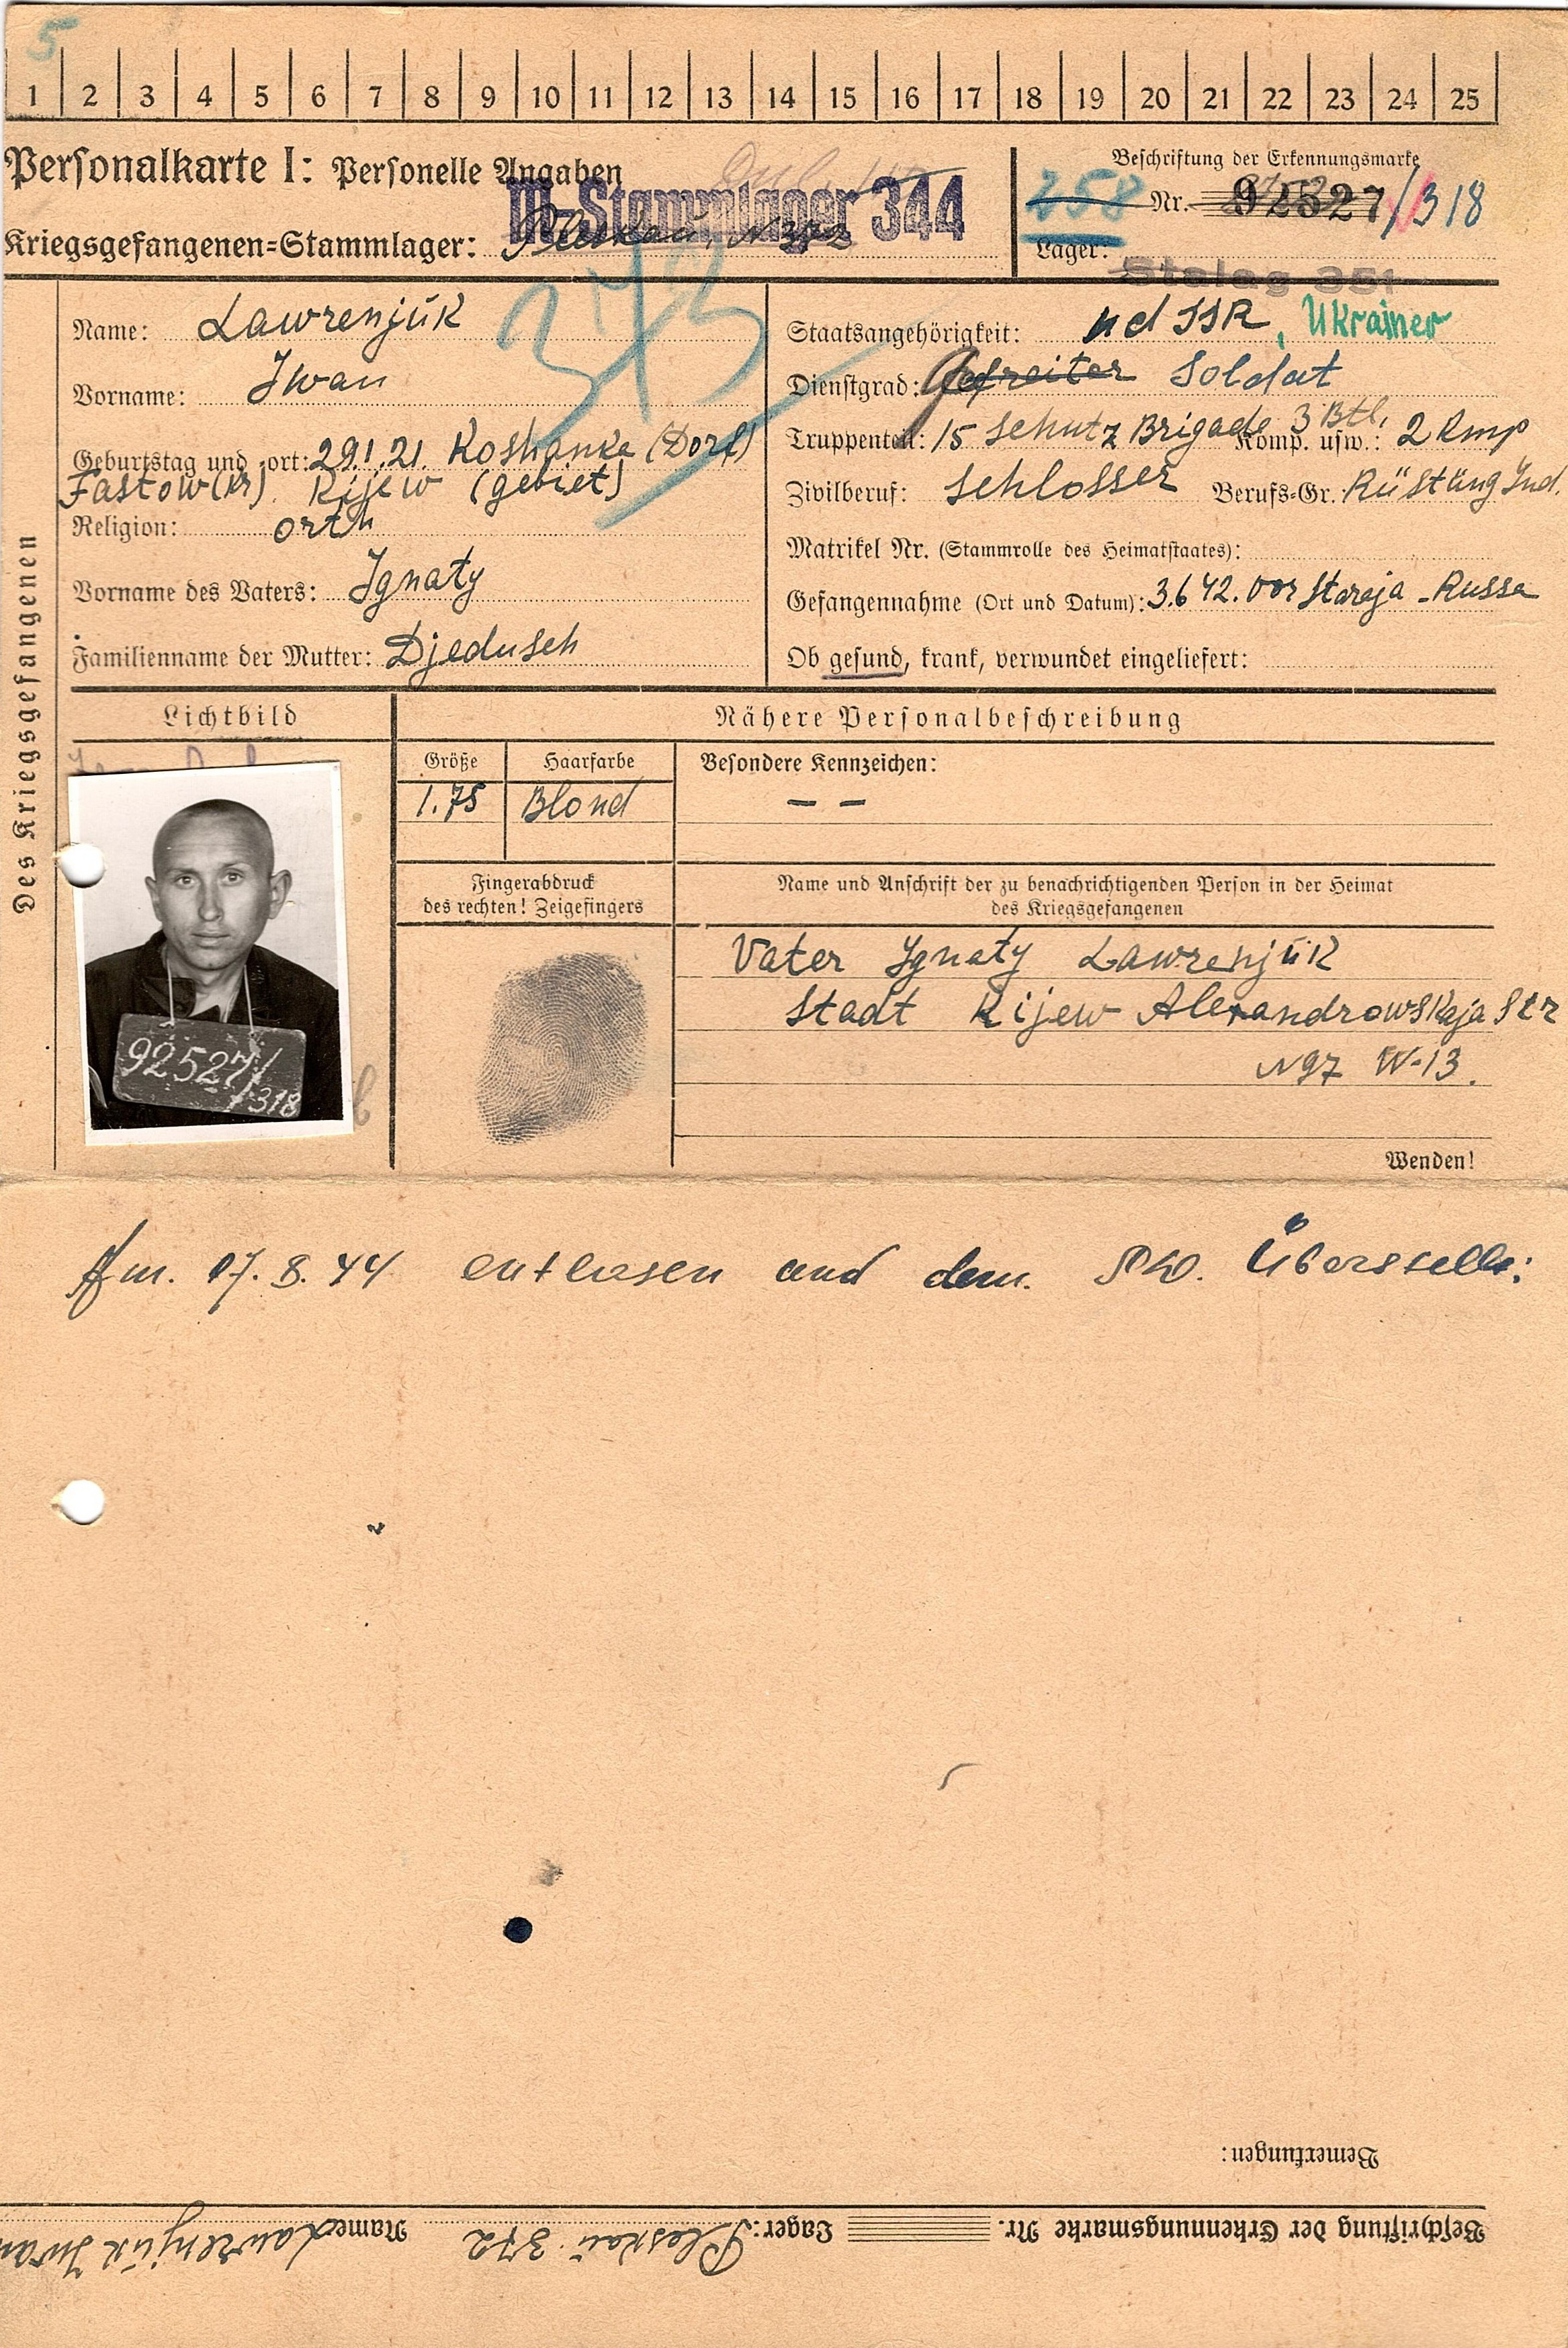 5
1 2 3 4 5 6 7 8 9 10 11 12 13 14 15 16 17 18 19 20 21 22 23 24 25
Personalkarte I: Personelle Angaben
Kriegsgefangenen=Stammlager: Pleskau, N 372
M.-Stammlager 344
Beschriftung der Erkennungsmarke
258 Nr. 92527/318
Lager: Stalag 351
Des Kriegsgefangenen
Name: Lawrenjuk
Vorname: Iwan
Geburtstag und =ort: 29.1.21. Koshanke (Dorf)
Fastow (Kr) Kijew (gebiet)
Religion: orth
Vorname des Vaters: Ignaty
Familienname der Mutter: Djedusch
Staatsangehörigkeit: UdSSR, Ukrainer
Dienstgrad: Gefreiter Soldat
Truppenteil: 15 Schutz Brigade 3 Btl. Komp. usw.: 2 Kmp
Zivilberuf: Schlosser Berufs=Gr. Rüstung Ind.
Matrikel Nr. (Stammrolle des Heimatstaates):
Gefangennahme (Ort und Datum): 3.6 42. vor Staraja - Russa
Ob gesund, krank, verwundet eingeliefert:
Lichtbild
Nähere Personalbeschreibung
Größe Haarfarbe Besondere Kennzeichen:
1.75 Blond — —
92527/318
Fingerabdruck
des rechten! Zeigefingers
Name und Anschrift der zu benachrichtigenden Person in der Heimat
des Kriegsgefangenen
Vater Ignaty Lawrenjuk
Stadt Kijew Alexandrowskaja Str
N 97 W-13.
Wenden!
Am 17.8.44 entlassen und dem
Bemerkungen:
Beschriftung der Erkennungsmarke Nr. Lager: Pleskau 372 Name: Lawrenjuk Iwan